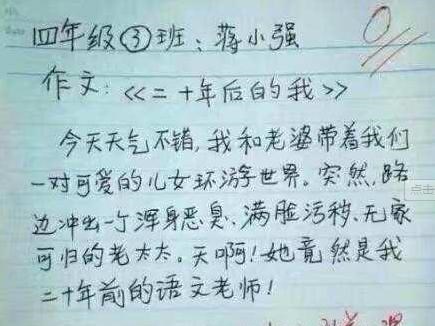 四年级③班：蒋小强
作文：<<二十年后的我>>
今天天气不错，我和老婆带着我们
一对可爱的儿女环游世界。突然，路
边冲出一个浑身恶臭、满脸污秽、无家
可归的老太太。天啊！她竟然是我
二十年前的语文老师！
0
点击